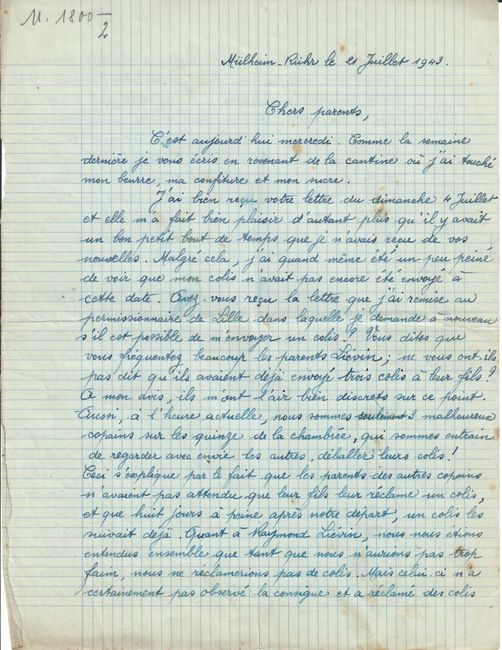 N. 1800-/2
Mülheim-Rühr le 21 Juillet 1943.
Chers parents,
C'est aujourd'hui mercredi. Comme la semaine
dernière je vous écris en revenant de la cantine où j'ai touché
mon beurre, ma confiture et mon sucre.
J'ai bien reçu votre lettre du dimanche 4 Juillet
et elle m'a fait bien plaisir d'autant plus qu'il y avait
un bon petit bout de temps que je n'avais reçu de vos
nouvelles. Malgré cela, j'ai quand même été un peu peiné
de voir que mon colis n'avait pas encore été envoyé à
cette date. Avez-vous reçu la lettre que j'ai remise au
permissionnaire de Lille dans laquelle je demande à nouveau
s'il est possible de m'envoyer un colis? Vous dites que
vous fréquentez beaucoup les parents Liévin; ne vous ont-ils
pas dit qu'ils avaient déjà envoyé trois colis à leur fils?
A mon avis, ils m'ont l'air bien discrets sur ce point.
Aussi, à l'heure actuelle, nous sommes seulement 3 malheureux
copains sur les quinze de la chambrée, qui sommes entrain
de regarder avec envie les autres déballer leurs colis!
Ceci s'explique par le fait que les parents des autres copains
n'avaient pas attendu que leur fils leur réclame un colis,
et que huit jours à peine après notre départ, un colis les
suivait déjà. Quant à Raymond Liévin, nous nous étions
entendus ensemble que tant que nous n'aurions pas trop
faim, nous ne réclamerions pas de colis. Mais celui-ci n'a
certainement pas observé la consigne et a réclamé des colis